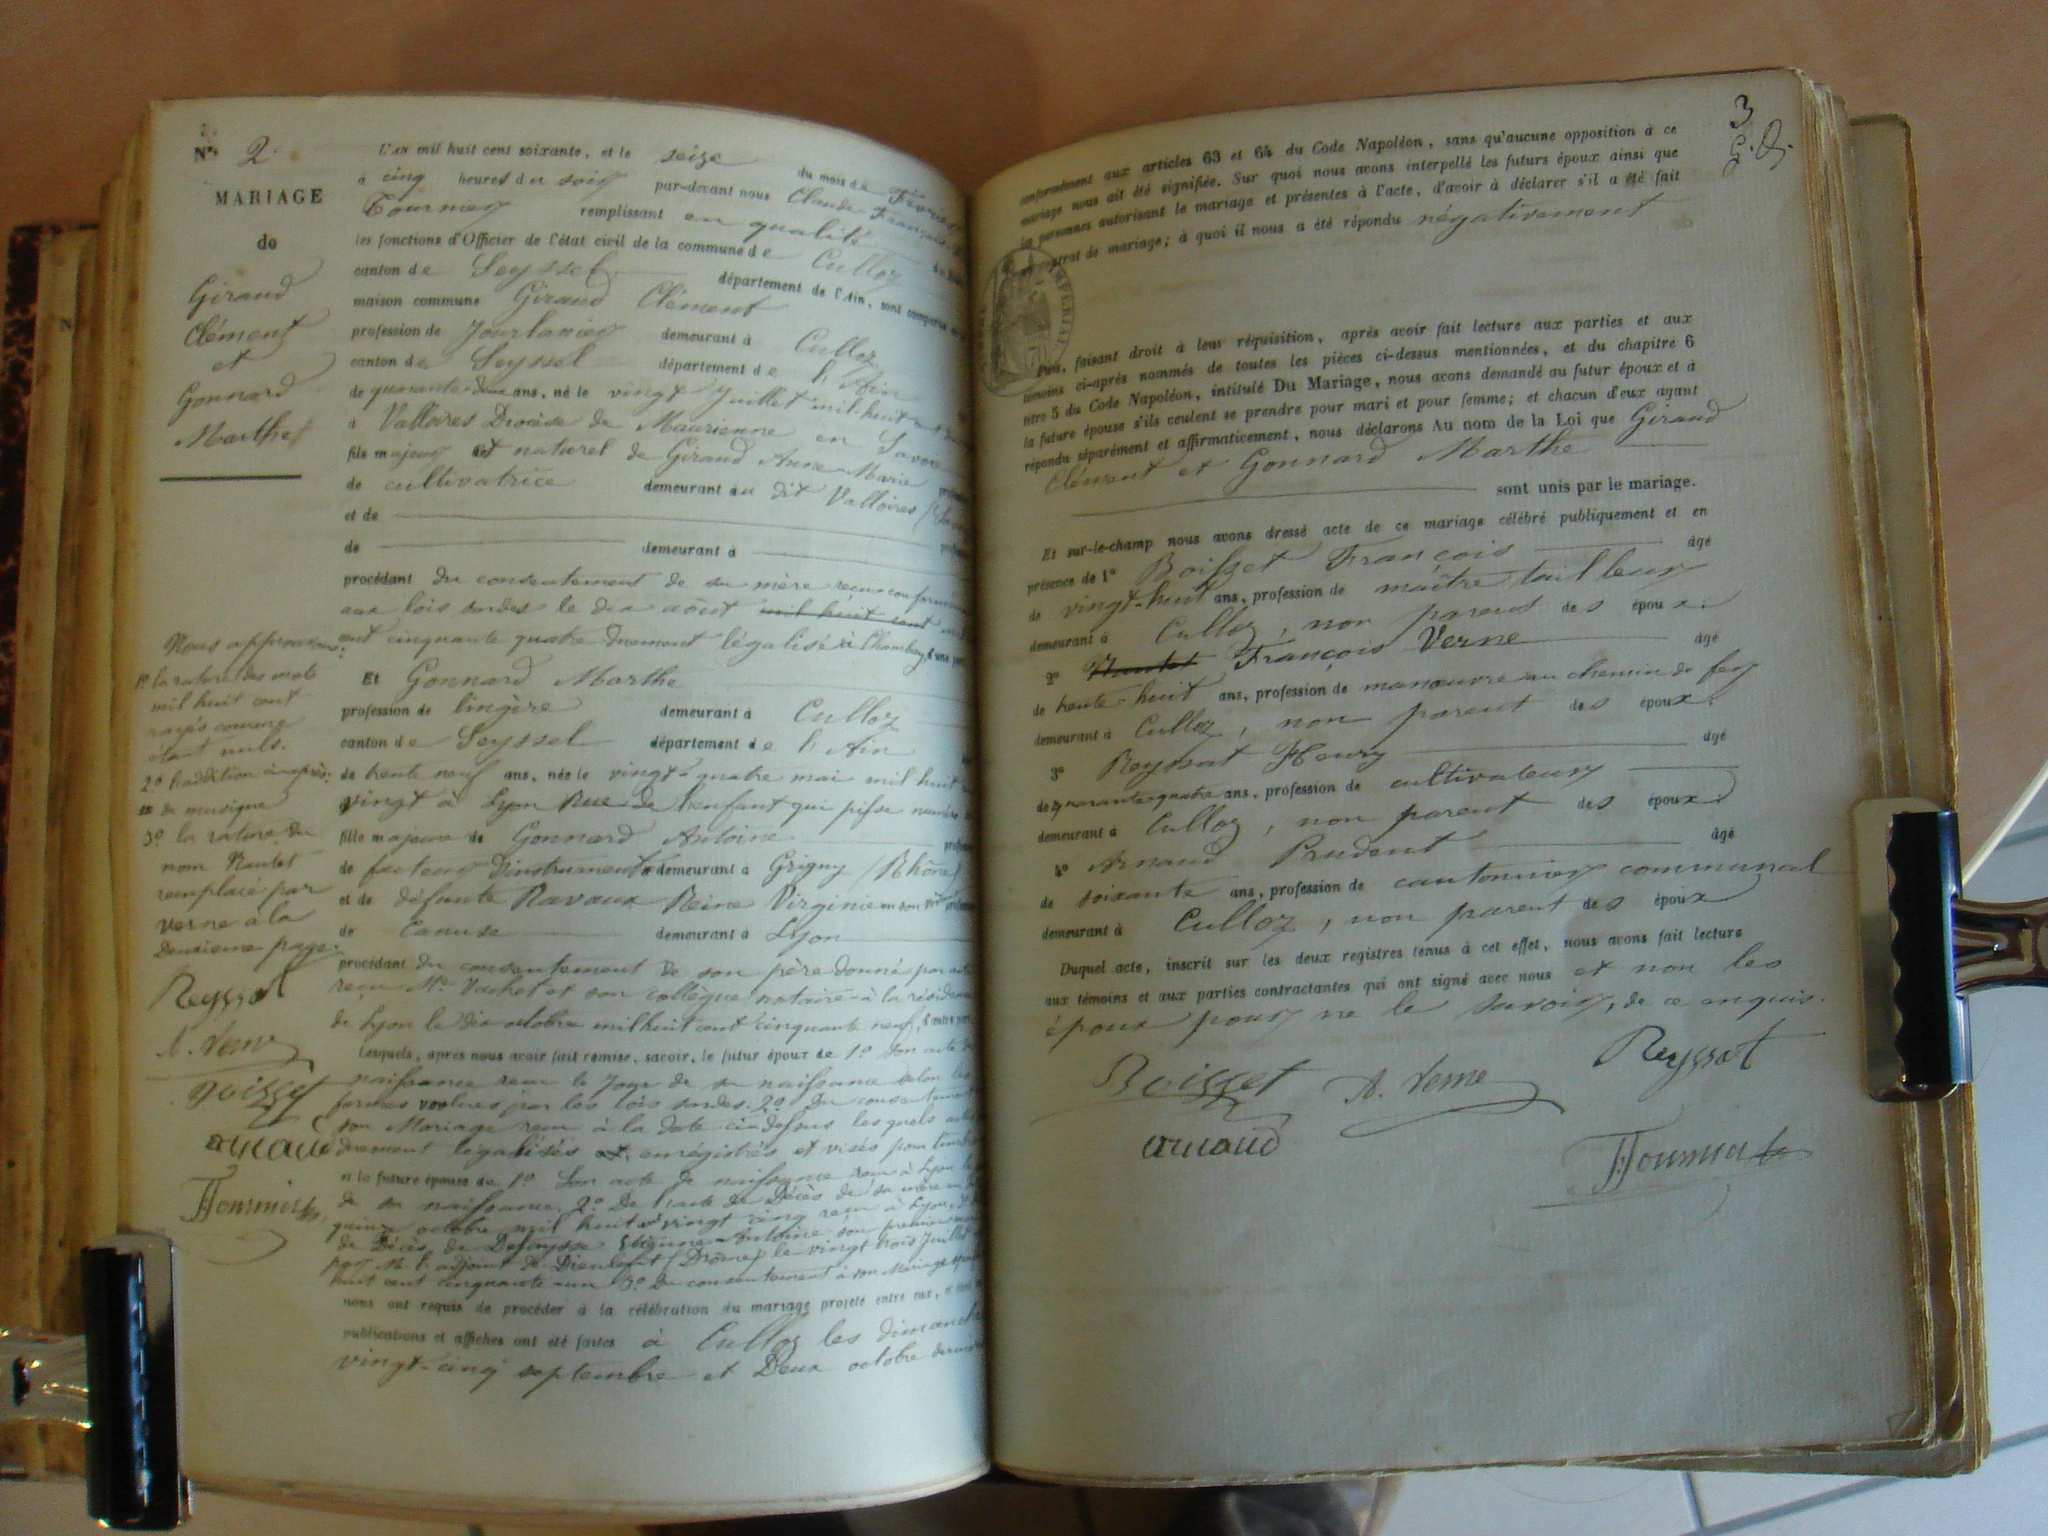 Nº 2.
MARIAGE
de
Giraud
Clément
et
Gonnard
Marthe
L'AN mil huit cent soixante, et le seize du mois de
à cinq heures du soir par-devant nous Claude François
Tournier remplissant en qualité
les fonctions d'Officier de l'état civil de la commune de Culloz
canton de Seyssel département de l'Ain, sont comparus
maison commune Giraud Clément
profession de demeurant à Culloz
canton de Seyssel département de l'Ain
de quarante-deux ans, né le vingt Juillet mil huit cent
à Valloires de Maurienne en Savoie
fils majeur et naturel de Giraud Anne-Marie
de cultivatrice demeurant au dit Valloires
et de
de demeurant à
procédant du consentement de sa mère reçu conformément
aux lois sardes le dix août mil huit cent
cent cinquante quatre dûment légalisé à Chambéry, d'une part
Et Gonnard Marthe
profession de lingère demeurant à Culloz
canton de Seyssel département de l'Ain
de trente neuf ans, née le vingt-quatre mai mil huit
vingt à Lyon Rue de l'enfant qui pisse numéro
fille majeure de Gonnard Antoine
de facteur D'instruments demeurant à Grigny (Rhône)
et de défunte Ravaux Reine Virginie en son
de Canuse demeurant à Lyon
procédant du consentement de son père donné par acte
reçu Me Vachet et son collègue notaire à la résidence
de Lyon le dix octobre mil huit cent cinquante neuf, d'autre part
Lesquels, après nous avoir fait remise, savoir, le futur époux de 1º son acte de
naissance reçu le jour de sa naissance selon les
formes voulues par les lois sardes. 2º Du consentement
son Mariage reçu à la date ci-dessus lesquels
dûment légalisés et enrégistrés et visés pour timbre
et la future épouse de 1º Son acte de naissance reçu à Lyon le
de sa naissance. 2º De l'acte de Décès de sa mère
quinze octobre mil huit cent vingt cinq reçu à Lyon,
de Décès de Etienne Antoine son premier
par Mr l'adjoint de Dieulefit (Drôme) le vingt trois Juillet
huit cent cinquante-un 3º Du consentement à son Mariage
nous ont requis de procéder à la célébration du mariage projeté entre eux,
publications et affiches ont été faites à Culloz les dimanches
vingt-cinq septembre et Deux octobre
Nous approuvons:
1º la rature des mots
mil huit cent
rayés comme
étant nuls.
2º l'addition
de musique
3º la rature du
nom Nantet
remplacé par
Verne à la
Deuxième page.
Reyssat
A. Verne
Boisset
arnaud
Tournier
3
conformément aux articles 63 et 64 du Code Napoléon, sans qu'aucune opposition à ce
mariage nous ait été signifiée. Sur quoi nous avons interpellé les futurs époux ainsi que
les personnes autorisant le mariage et présentes à l'acte, d'avoir à déclarer s'il a été fait
un contrat de mariage; à quoi il nous a été répondu négativement
IMPERIAL
Puis, faisant droit à leur réquisition, après avoir fait lecture aux parties et aux
témoins ci-après nommés de toutes les pièces ci-dessus mentionnées, et du chapitre 6
titre 5 du Code Napoléon, intitulé Du Mariage, nous avons demandé au futur époux et à
la future épouse s'ils veulent se prendre pour mari et pour femme; et chacun d'eux ayant
répondu séparément et affirmativement, nous déclarons Au nom de la Loi que Giraud
Clément et Gonnard Marthe
sont unis par le mariage.
Et sur-le-champ nous avons dressé acte de ce mariage célébré publiquement et en
présence de 1º Boisset François âgé
de vingt-huit ans, profession de maître tailleur
demeurant à Culloz, non parent des époux.
2º Nantet François Verne âgé
de trente-huit ans, profession de manœuvre au chemin de fer
demeurant à Culloz, non parent des époux.
3º Reyssat Fleury âgé
de quarante quatre ans, profession de cultivateur
demeurant à Culloz, non parent des époux.
4º Arnaud Prudent âgé
de soixante ans, profession de cantonnier communal
demeurant à Culloz, non parent des époux
Duquel acte, inscrit sur les deux registres tenus à cet effet, nous avons fait lecture
aux témoins et aux parties contractantes qui ont signé avec nous et non les
époux pour ne le savoir, de ce enquis.
Boisset A. Verne Reyssat
arnaud Tournier